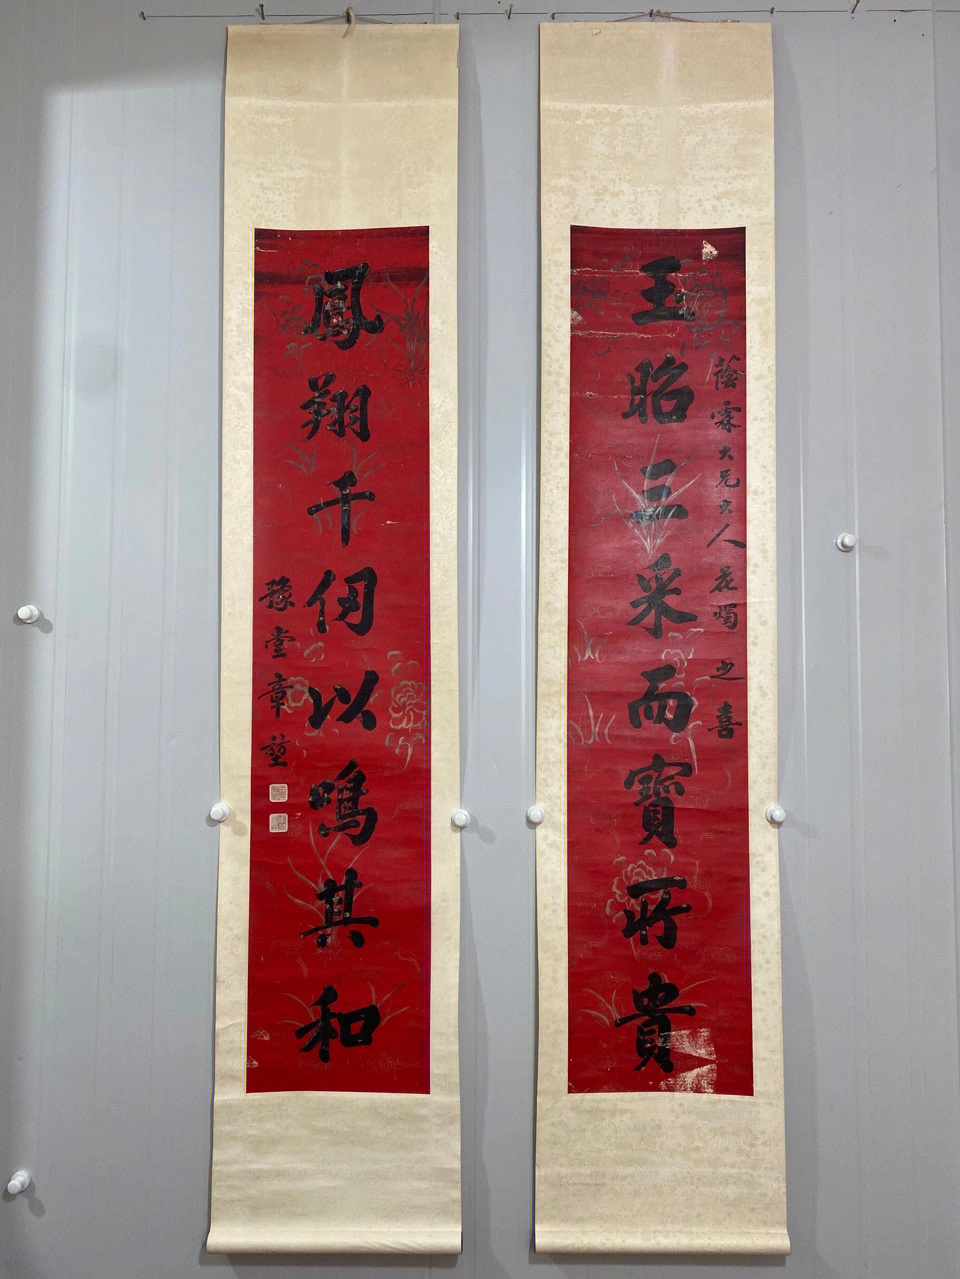 玉昭三采而寶所貴
蔭霖大兄大人花燭之喜
鳳翔千仞以鳴其和
豫堂章